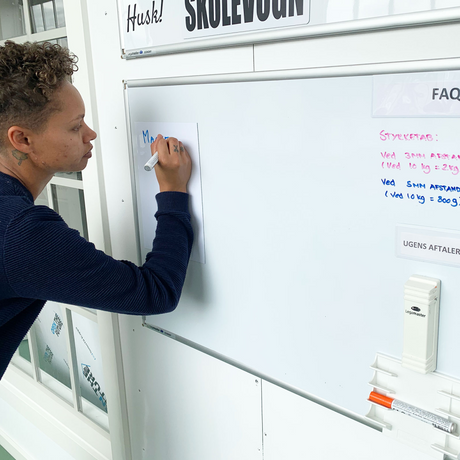 Husk!
SKOLEVOGN
FAQ
Ma
STYRKETAB:
Ved 3MM AFSTAN
(Ved 10 kg = 2kg
Ved 5MM AFSTAND
(Ved 10kg = 800g)
UGENS AFTALER